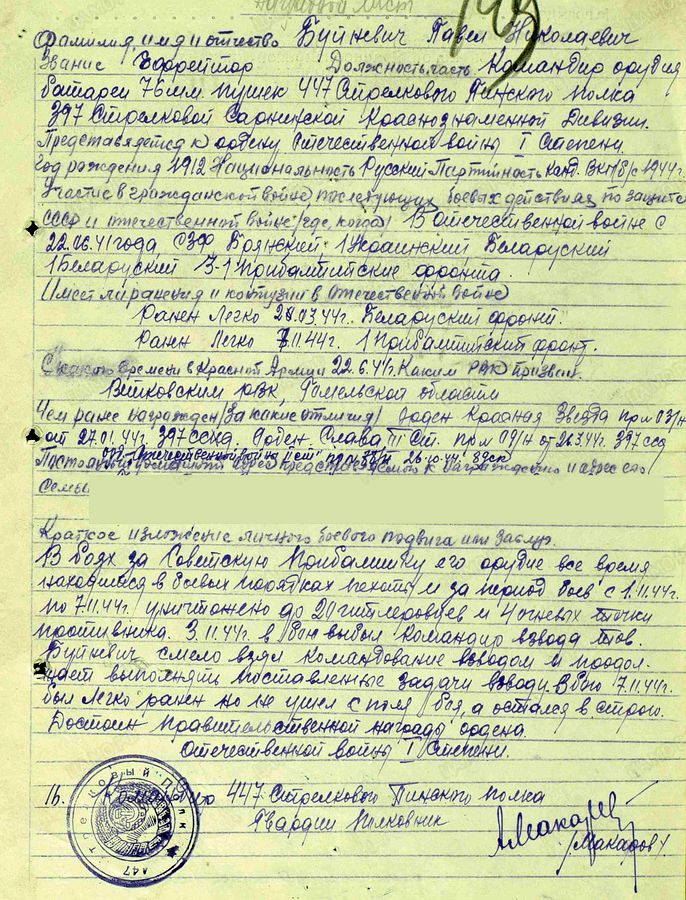 Наградной лист
Фамилия, имя и отчество Буткевич Павел Николаевич
Звание Ефрейтор Должность, часть Командир орудия
батареи 76 мм. пушек 447 Стрелкового Пинского полка
397 Стрелковой Сарнинской Краснознаменной Дивизии.
Представляется к ордену Отечественной войны I Степени
Год рождения 1912 Национальность Русский Партийность Канд. ВКП/б/ с 1944г.
Участие в гражданской войне, последующих боевых действиях по защите
СССР и отечественной войне /где, когда/ В Отечественной войне с
22.06.41 года СЗФ Брянский 1 Украинский Беларуский
1 Беларуский 3-1 Прибалтийские фронта.
Имеет ли ранения и контузии в отечественной войне
Ранен Легко 28.03.44г. Беларуский фронт.
Ранен Легко 7.11.44г. 1 Прибалтийский фронт.
С какого времени в Красной Армии 22.6.41г. Каким РВК призван.
РВК, Гомельской области
Чем ранее награжден /За какие отличия/ орден Красная Звезда пр. № 03/н
от 27.01.44г. 397 ссд. Орден Слава III Ст. пр № 09/н от 26.3.44г. 397 ссд
орд. Отечественной войны II ст. пр № 26.10.44г.
Постоянный домашний адрес представляемого к награждению и адрес его
семьи
Краткое изложение личного боевого подвига или заслуг.
В боях за Советскую Прибалтику его орудие все время
находилося в боевых порятках пехоты и за период боев с 1.11.44г.
по 7.11.44г. уничтожено до 20 гитлеровцев и 4 огневых точки
противника. 3.11.44г. в бою выбыл командир взвода тов.
Буткевич смело взял командование взводом и продол-
жает выполнять поставленные задачи взводу. В бою 7.11.44г.
был легко ранен но не ушел с поля боя, а остался в строю.
Достоин правительственной награды ордена
Отечественной войны I Степени.
447 Стрелкового Пинского полка
Гвардии Полковник
/Макаров/